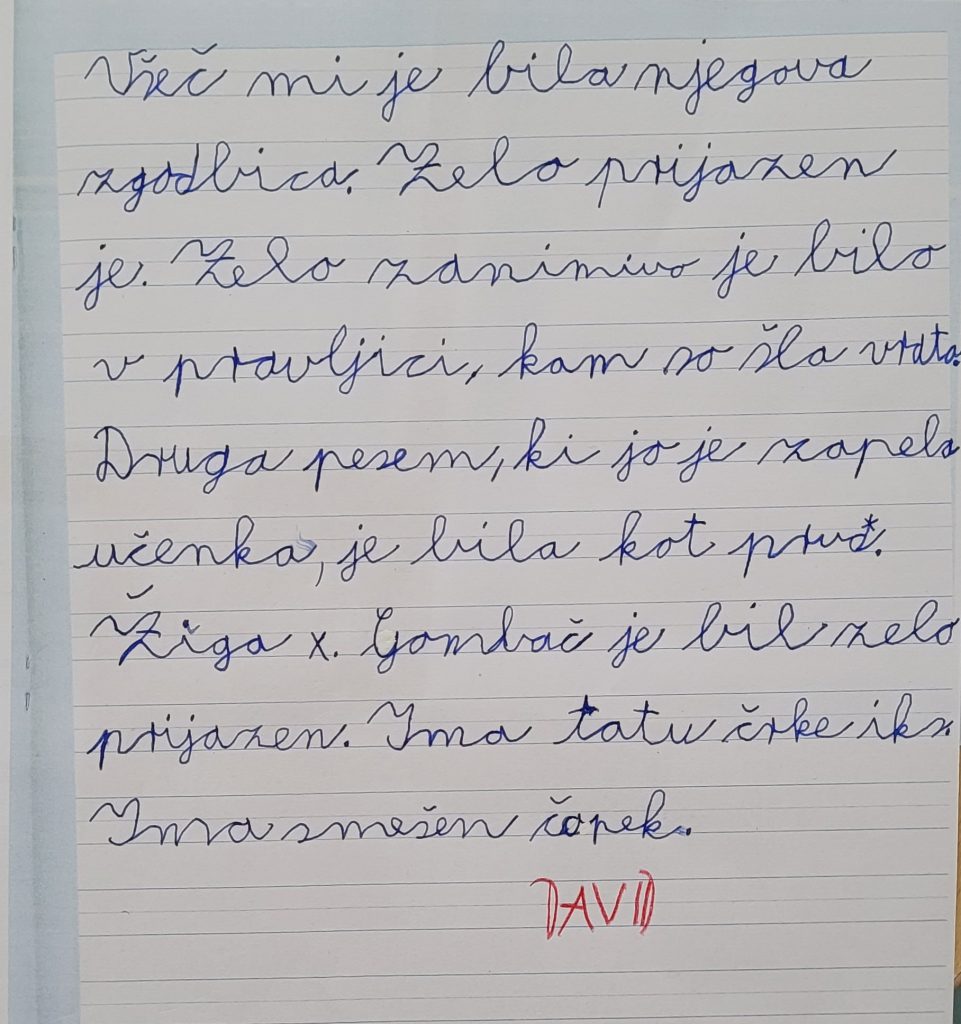 Všeč mi je bila njegova
zgodbica. Zelo prijazen
je. Zelo zanimivo je bilo
v pravljici, kam so šla vrata.
Druga pesem, ki jo je zapela
učenka, je bila kot prvž.
Žiga X. Gombač je bil zelo
prijazen. Ima tatu črke iks.
Ima smešen čopek.
DAVID